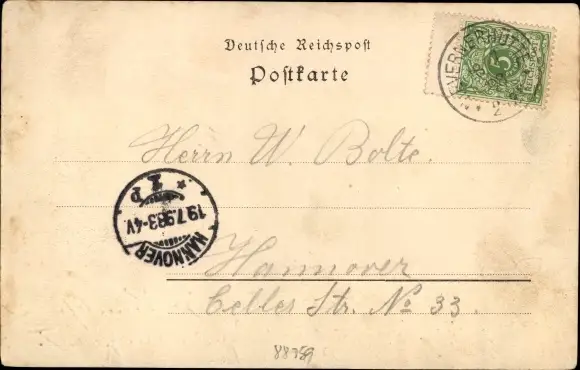 Deutsche Reichspost
Postkarte
5
Herrn W. Bolte.
HANNOVER
19.7.98.3-4V.
* 1 P *
Hannover
Celler Str. No 33.
88759